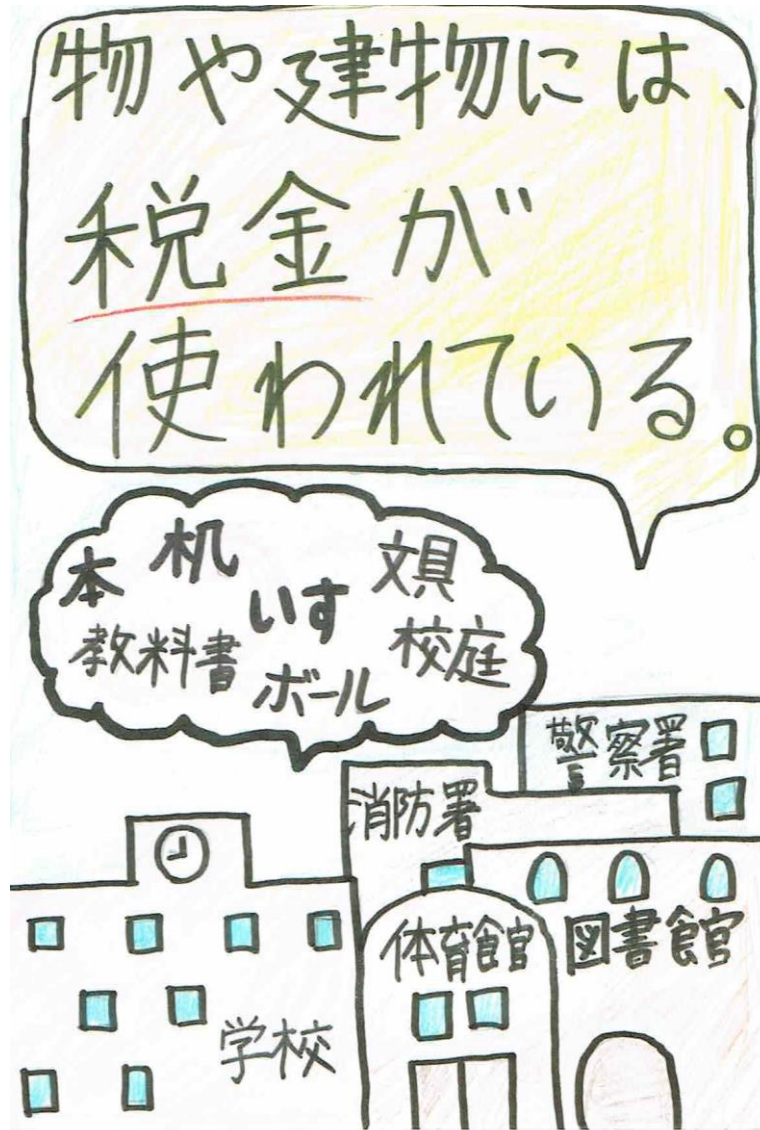 物や建物には、
税金が
使われている。
本 机 いす 文具
教科書 ボール 校庭
警察署
消防署
体育館
図書館
学校